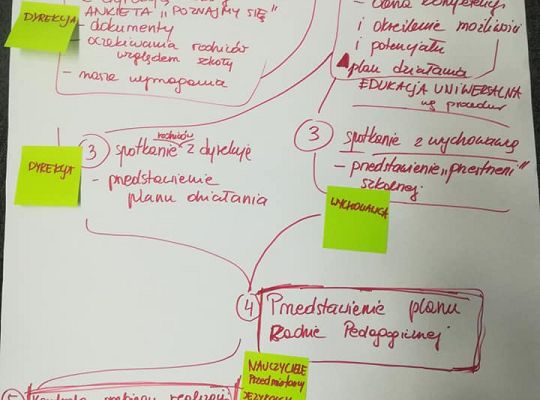 DYREKCJA
ANKIETA "POZNAJMY SIĘ"
- dokumenty
- oczekiwania rodziców
względem szkoły
- nasze wymagania
i określenie możliwości
i potencjału
plan działania
EDUKACJA UNIWERSALNA
wg procedur
DYREKCJA
3
rodziców
spotkanie z dyrekcją
- przedstawienie
planu działania
3
spotkanie z wychowawcą
- przedstawienie "przestrzeni"
szkolnej
WYCHOWAWCA
4
Przedstawienie planu
Radzie Pedagogicznej
NAUCZYCIELE
Przedmiotowy
5